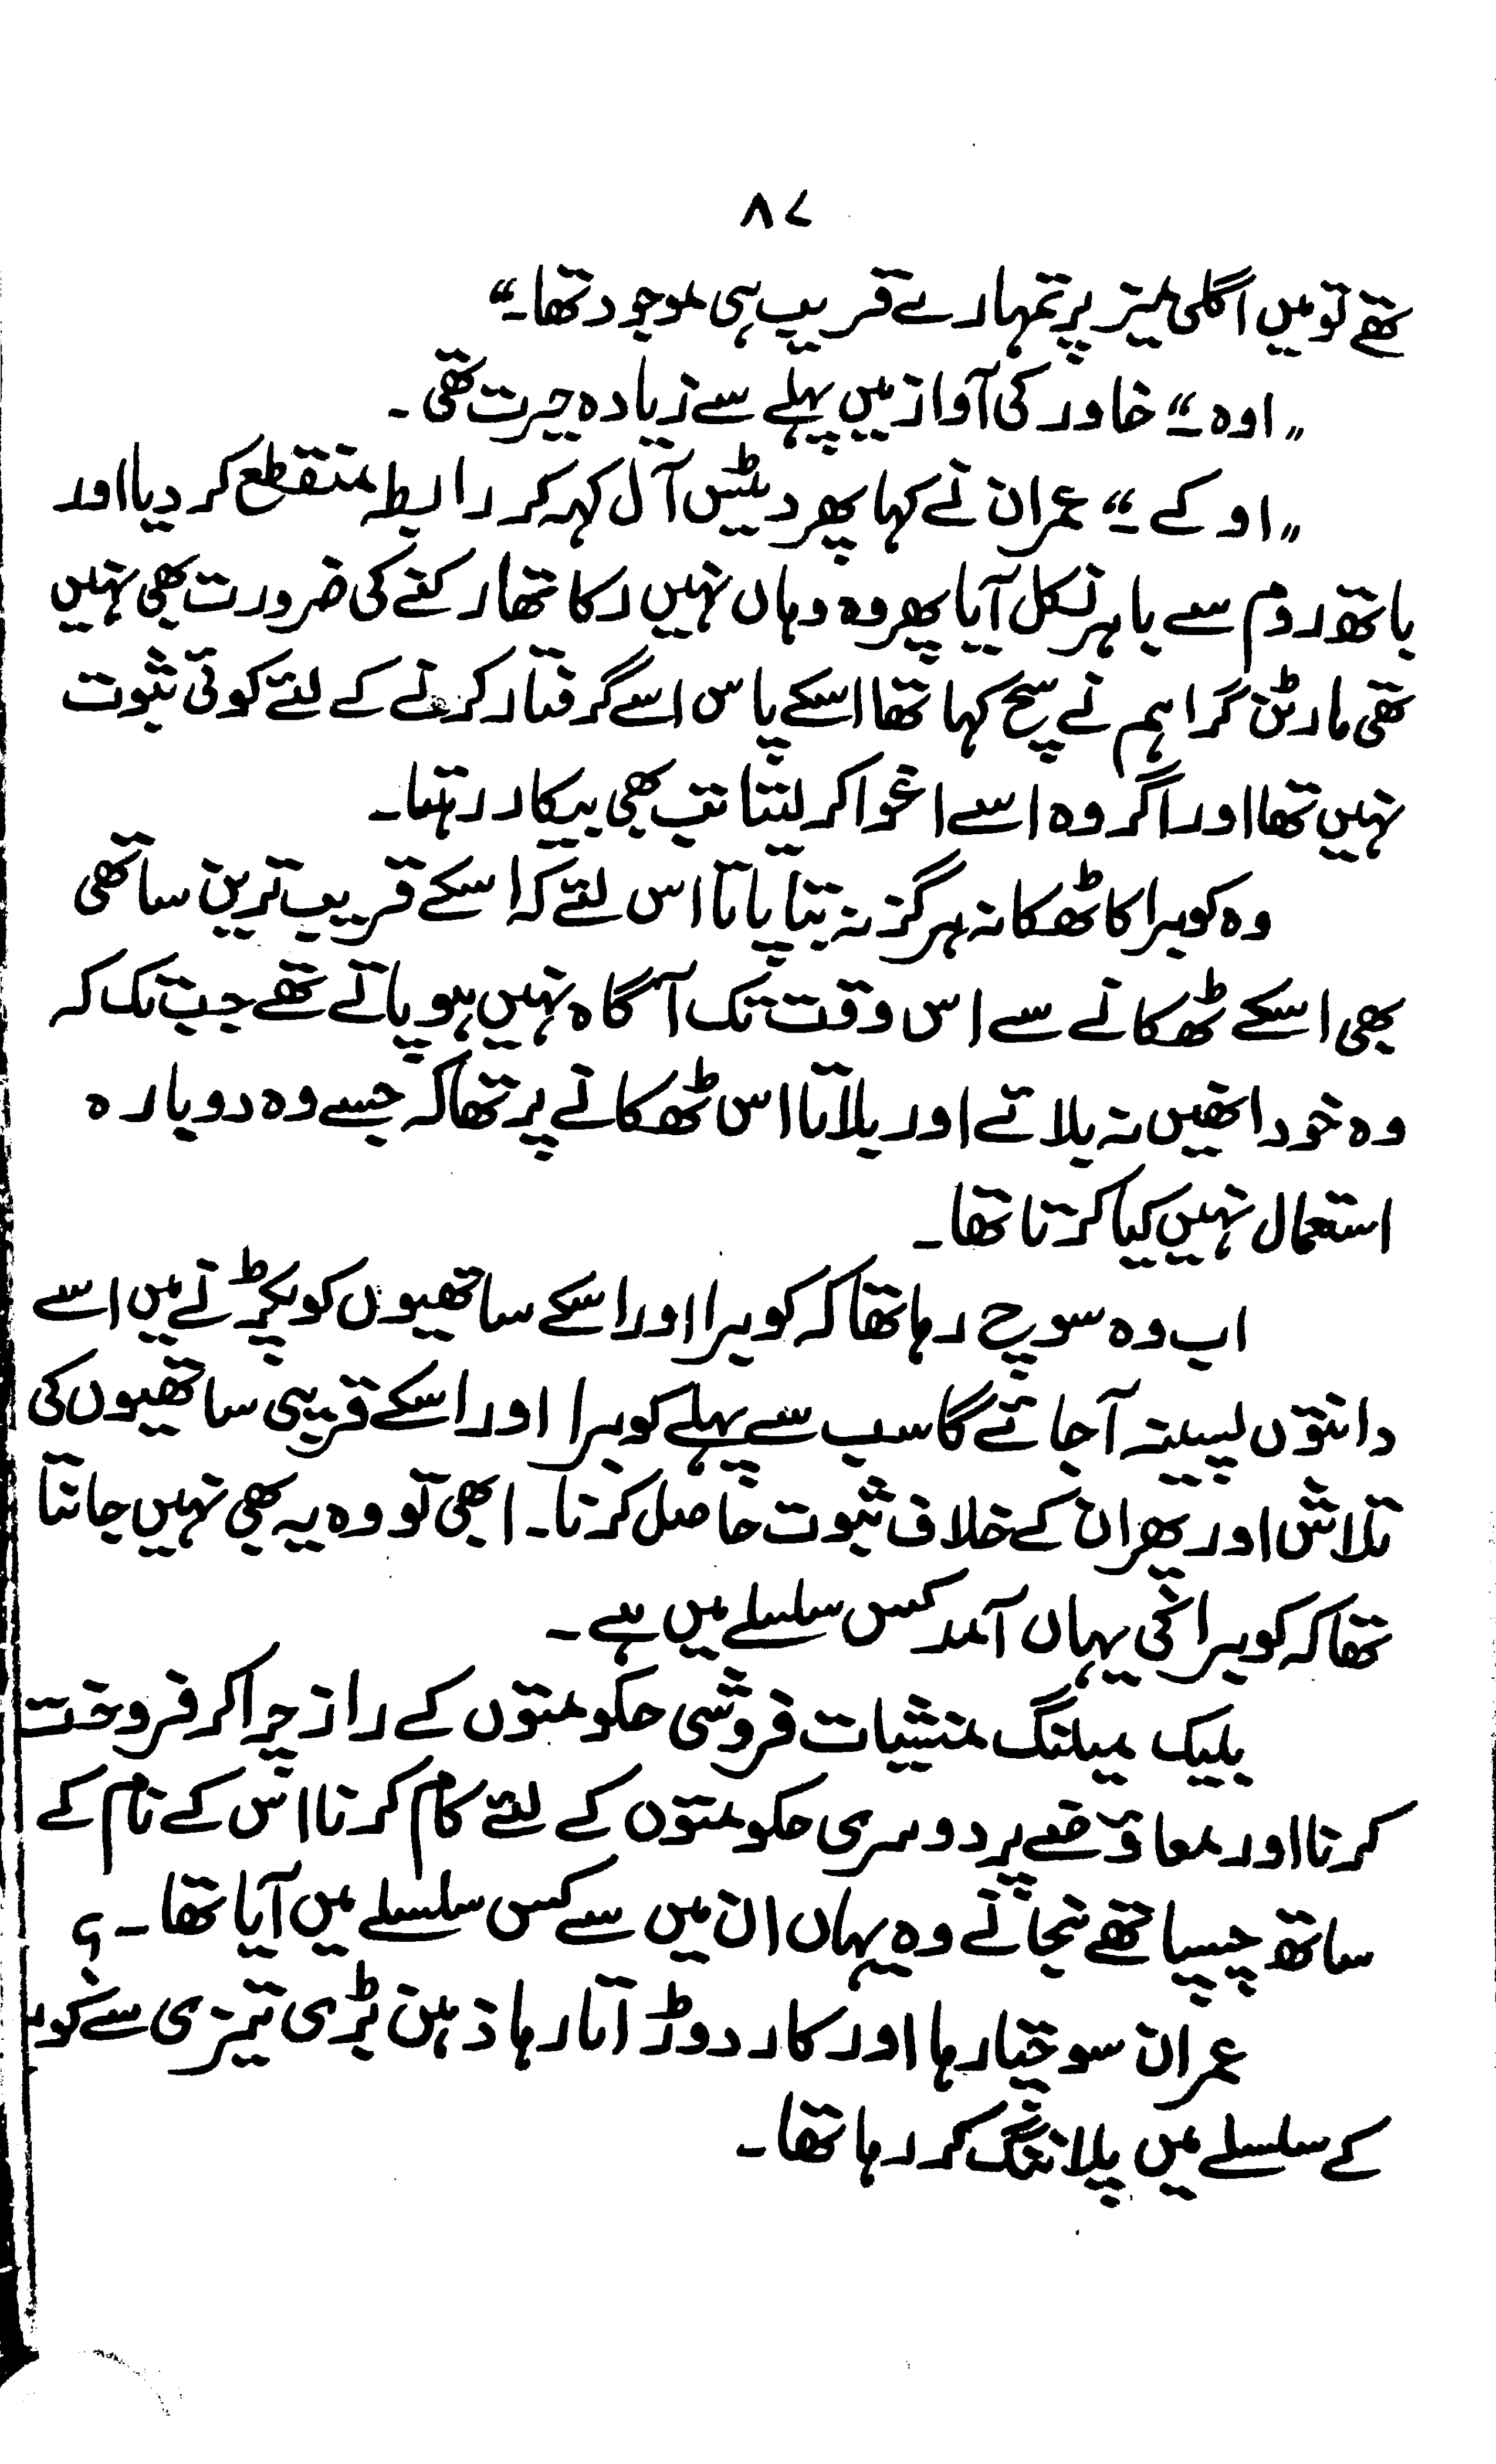 ۸۷
تھے تو میں اگلی میز پر تمہارے قریب ہی موجود تھا۔“
”اوہ۔“ خاور کی آواز میں پہلے سے زیادہ حیرت تھی۔
”او کے۔“ عمران نے کہا پھر دیٹس آل کہہ کر رابطہ منقطع کر دیا اور
باتھ روم سے باہر نکل آیا پھر وہ وہاں نہیں رکا تھا رکنے کی ضرورت بھی نہیں
تھی مارٹن گراہم نے سچ کہا تھا اسکے پاس اسے گرفتار کرنے کے لئے کوئی ثبوت
نہیں تھا اور اگر وہ اسے اغوا کر لیتا تب بھی بیکار رہتا۔
وہ کوبرا کا ٹھکانہ ہرگز نہ بتا پاتا اس لئے کہ اسکے قریب ترین ساتھی
بھی اسکے ٹھکانے سے اس وقت تک آگاہ نہیں ہو پاتے تھے جب تک کہ
وہ خود انھیں نہ بلائے اور بلاتا اس ٹھکانے پر تھا کہ جسے وہ دوبارہ
استعمال نہیں کیا کرتا تھا۔
اب وہ سوچ رہا تھا کہ کوبرا اور اسکے ساتھیوں کو پکڑنے میں اسے
دانتوں پسینہ آجائے گا سب سے پہلے کوبرا اور اسکے قریبی ساتھیوں کی
تلاش اور پھر ان کے خلاف ثبوت حاصل کرنا۔ ابھی تو وہ یہ بھی نہیں جانتا
تھا کہ کوبرا کی یہاں آمد کس سلسلے میں ہے۔
بلیک میلنگ منشیات فروشی حکومتوں کے راز چرا کر فروخت
کرنا اور معاوضے پر دوسری حکومتوں کے لئے کام کرنا اس کے نام کے
ساتھ چسپا تھے نجانے وہ یہاں ان میں سے کس سلسلے میں آیا تھا۔؟
عمران سوچتا رہا اور کار دوڑ اتا رہا ذہن بڑی تیزی سے
کے سلسلے میں پلاننگ کر رہا تھا۔